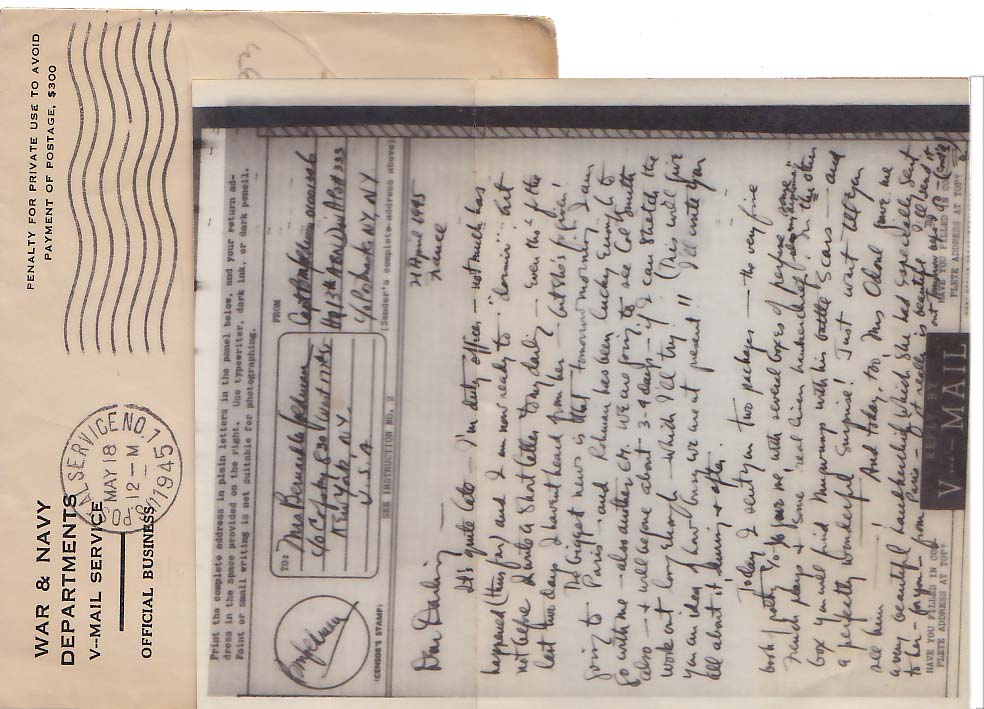 PENALTY FOR PRIVATE USE TO AVOID
PAYMENT OF POSTAGE, $300
WAR & NAVY
DEPARTMENTS
V--MAIL SERVICE
OFFICIAL BUSINESS
POSTAL SERVICE NO. 1
MAY 18
12-M
1945
Print the complete address in plain letters in the panel below, and your return ad-
dress in the space provided on the right. Use typewriter, dark ink, or dark pencil.
Faint or small writing is not suitable for photographing.
TO:
Mrs Bernard
630 West
New York N.Y.
U.S.A
FROM
Capt
Hq 13th Div APO 333
c/o Postmaster, NY, NY
(Sender's complete address above)
(CENSOR'S STAMP)
SEE INSTRUCTION NO. 2
21 April 1945
France
Dear Darling
It's quite late - I'm duty officer - not much has
happened (thus far) and I am now ready to - but
not before I write a short letter to my darling - Even tho' for the
last two days I haven't heard from her - but
The biggest news is that tomorrow morning I am
going to Paris - and has been lucky enough to
go with me - also another Lt. We are going to see Col Smith
also - & will be gone about 3-4 days - if I can stretch the
work out long enough - which I'll try! (This will give
you an idea of how busy we are at present!! I'll write you
all about it during & after.
Today I sent you two packages - the very fine
book I for me with several boxes of perfume some
French plays & some 'real linen handkerchief' In the other
box you will find with his battle scars - and
a perfectly wonderful surprise! Just wait till you
see him! And today, too Mrs gave me
a very beautiful handkerchief which she had especially sent
to her - for you - from Paris - it really is beautiful I'll send it
out tomorrow
HAVE YOU FILLED IN COM-
PLETE ADDRESS AT TOP?
V...-MAIL
HAVE YOU FILLED IN COM-
PLETE ADDRESS AT TOP?